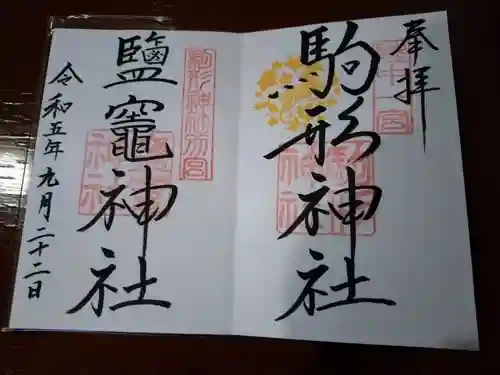 奉拝
陸中一宮
駒形神社
駒形神社別宮
鹽竈神社
令和五年九月二十二日